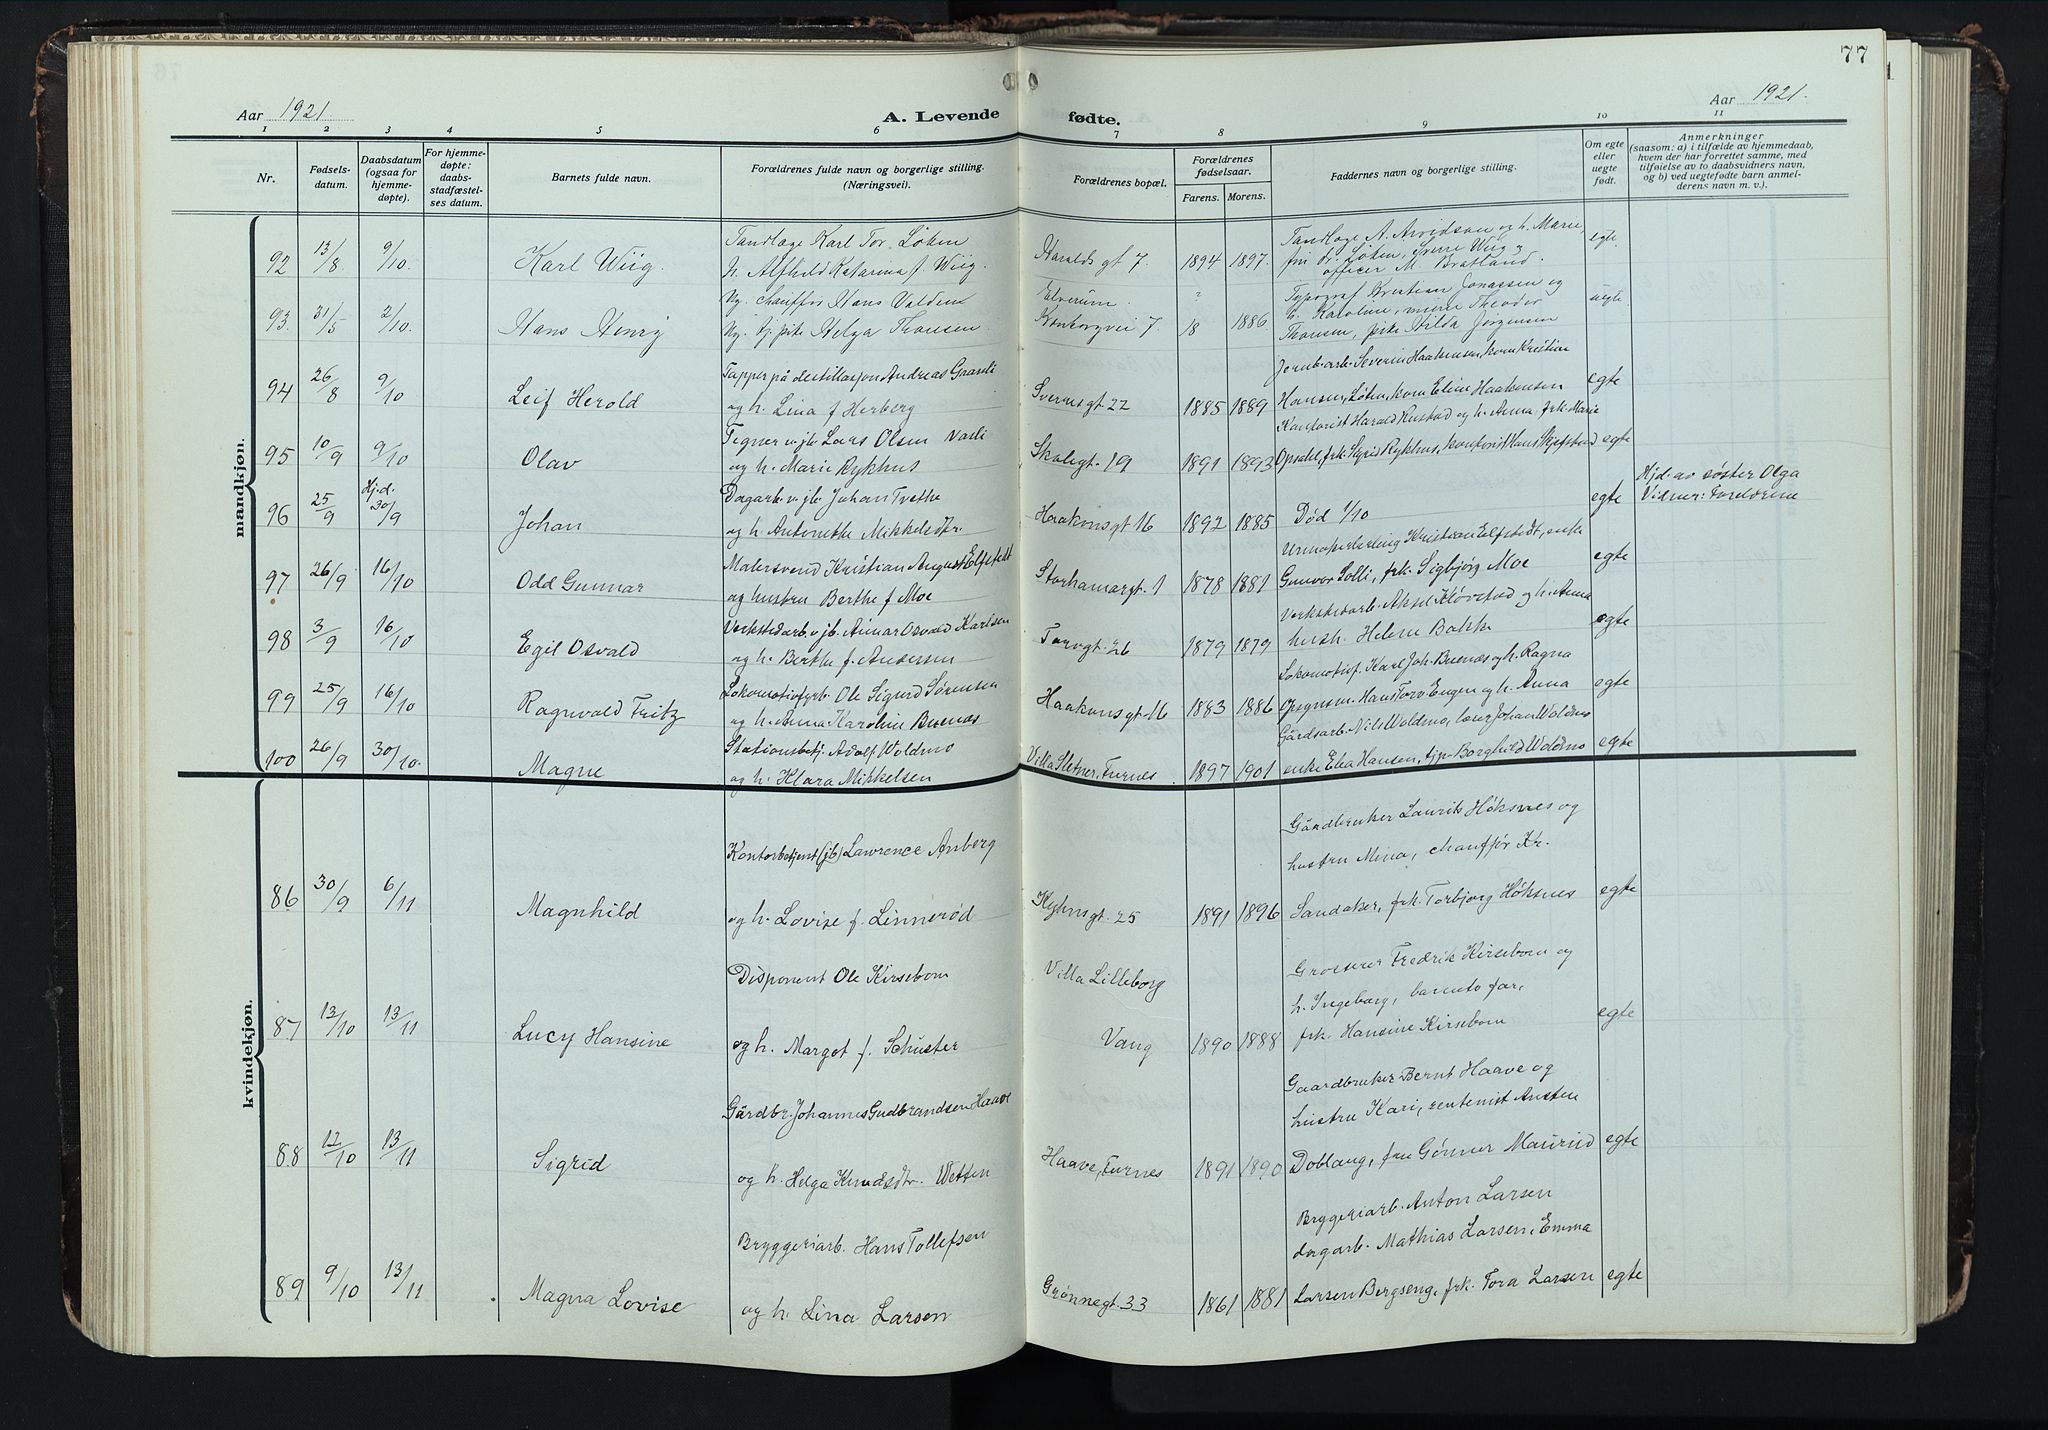 77
Aar 1921.
A. Levende fødte.
Aar 1921.
1 2 3 4 5 6 7 8 9 10 11
Nr.
Fødsels-
datum.
Daabsdatum
(ogsaa for
hjemme-
døpte).
For hjemme-
døpte:
daabs-
stadfæstel-
ses datum.
Barnets fulde navn.
Forældrenes fulde navn og borgerlige stilling.
(Næringsvei).
Forældrenes bopæl.
Forældrenes
fødselsaar.
Farens. Morens.
Faddernes navn og borgerlige stilling.
Om egte
eller
uegte
født.
Anmerkninger
(saasom: a) i tilfælde av hjemmedaab,
hvem der har forrettet samme, med
tilføielse av to daabsvidners navn,
og b) ved uegtefødte barn anmel-
derens navn m. v.).
mandkjøn.
92 13/8 9/10 Karl Wiig.
Tandlæge Karl Tor. Løken
h. Alfhild Katarina f. Wiig.
Haralds gt 7. 1894 1897.
Tandlæge A. Arvidson og h. Marie,
frk. Løken, Sverre Wiig og
officer M. Bratland.
egte.
93. 31/5 2/10 Hans Henry
Ug. chauffør Hans Valden
Ug. tj. pike Helga Thonsen
Elverum.
Kronborgvei 7 ? 18 1886
Typograf Kristian Jonassen og
h. Karoline, murer Theodor
Thonsen, pike Hilda Jørgensen
uegte.
94 26/8 9/10 Leif Herold
Tapper på destillasjon Andreas Granli
og h. Lina f Herberg
Sverresgt. 22 1885 1889
Jernb.arb. Severin Haakensen, kone Kristine
Hansen, Løten, kone Eline Haakensen
egte
95 10/9 9/10 Olav
Tegner v. jb. Lars Olsen Varli
og h. Marie Rykhus
Skolegt. 19 1891 1893
Kontorist Harald Rustad og h. Anna, frk. Marie
Opsdal, frk. Sigrid Rykhus, kontorist Hans Skjefstad
egte
96 25/9 Hj.d. 30/9 Johan
Dagarb. v. jb. Johan Tvethe
og h. Antonette Mikkelsdtr.
Haakonsgt 16 1892 1885
Død 1/10
egte
Hj.d. av søster Olga
Vidner: Foreldrene
97 26/9 16/10 Odd Gunnar
Malersvend Kristian August Elfstedt
og hustru Berthe f Moe
Storhamargt. 1 1878 1881
Urmakerlærling Kristian Elfstedt, enke
Gunvor Solli, frk. Sigbjørg Moe
egte
98 3/9 16/10 Egil Osvald
Verkstedarb. v. jb. Einar Osvald Karlsen
og h. Berthe f. Andersen
Torvgt. 26 1879 1879
Verkstedarb. Aksel Kløvstad og h. Anna
hush. Helene Bakke
egte
99 25/9 16/10 Ragnvald Fritz
Lokomotivfyrb. Ole Sigurd Sørensen
og h. Anna Karoline Buenæs
Haakonsgt. 16 1883 1886
Lokomotivf. Karl Joh. Buenæs og h. Ragna
opsynsm. Hans Torv Engen og h. Anna
egte
100 26/9 30/10. Magne
Stationsbetj. Adolf Woldmo
og h. Klara Mikkelsen
Villa Sletner, Furnes 1897 1901
Gårdsarb. Nils Woldmo, læreg. Johan Woldmo
enke Elea Hansen, tjp. Borghild Woldmo
egte
kvindekjøn.
86 30/9 6/11 Magnhild
Kontorbetjent (jb) Lawrence Anberg
og h. Lovise f. Linnerød
Kyhnsgt. 25 1891 1896
Gårdbruker Laurits Høksnes og
hustru Mina, chauffør Kr.
Sandaker, frk. Torbjørg Høksnes
egte
87 13/10 13/11 Lucy Hansine
Disponent Ole Kirsebom
og h. Margot f. Schuster
Villa Lilleborg
Vang 1890 1888
Grosserer Fredrik Kirsebom og
h. Ingeborg, barnets far,
frk. Hansine Kirsebom
egte
88 12/10 13/11 Sigrid
Gårdbr. Johannes Gudbrandsen Haave
og h. Helga Knudsdtr. Wetten
Haave, Furnes 1891 1890
Gaardbruker Bernt Haave og
hustru Kari, rentenist Austen
Doblaug, fru Gønner Maurud
egte
89 9/10 13/11 Magna Lovise
Bryggeriarb. Hans Tollefsen
og h. Lina Larsen
Grønnegt. 33 1861 1881
Bryggeriarb. Anton Larsen
dagarb. Mathias Larsen, Emma
Larsen Bergseng, frk. Tora Larsen
egte